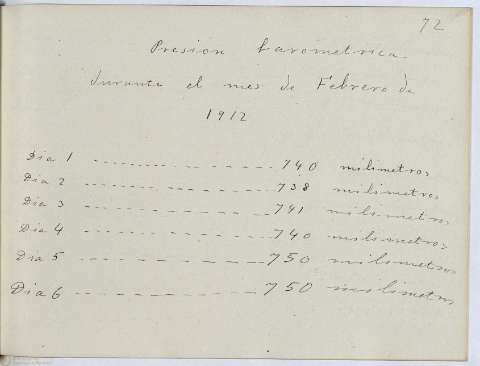 72
Presion barometrica
durante el mes de Febrero de
1912
Dia 1 ---------- 740 milimetros
Dia 2 ---------- 738 milimetros
Dia 3 ---------- 741 milimetros
Dia 4 ---------- 740 milimetros
Dia 5 ---------- 750 milimetros
Dia 6 ---------- 750 milimetros